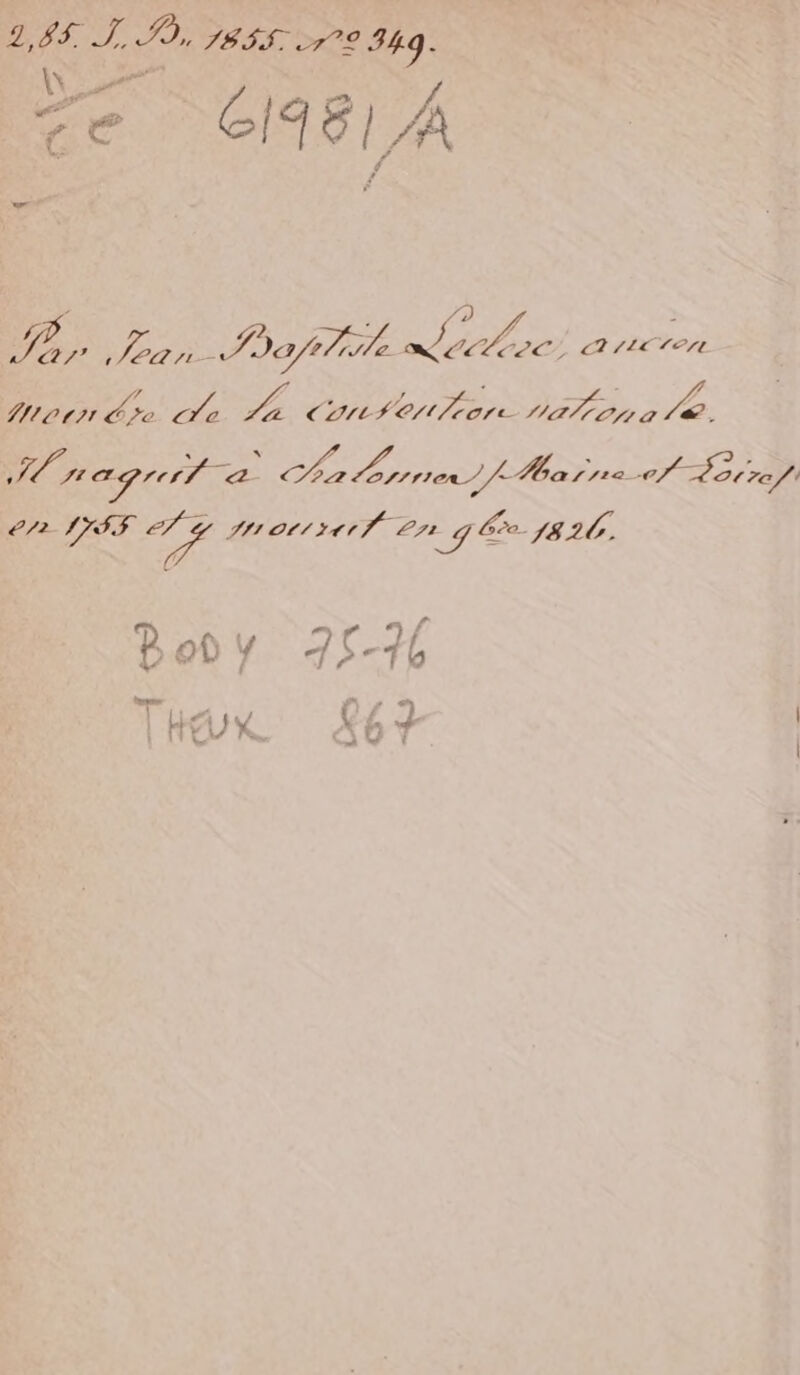 2,85. J. D. 1855. nº 349.
61981/A
Par Jean-Baptiste Leclerc, ancien
membre de la Convention nationale.
Il naquit à Chalonnes (Maine et Loire)
en 1755 et y mourut en 9bre 1826.
BODY 75-76
THEUX 867